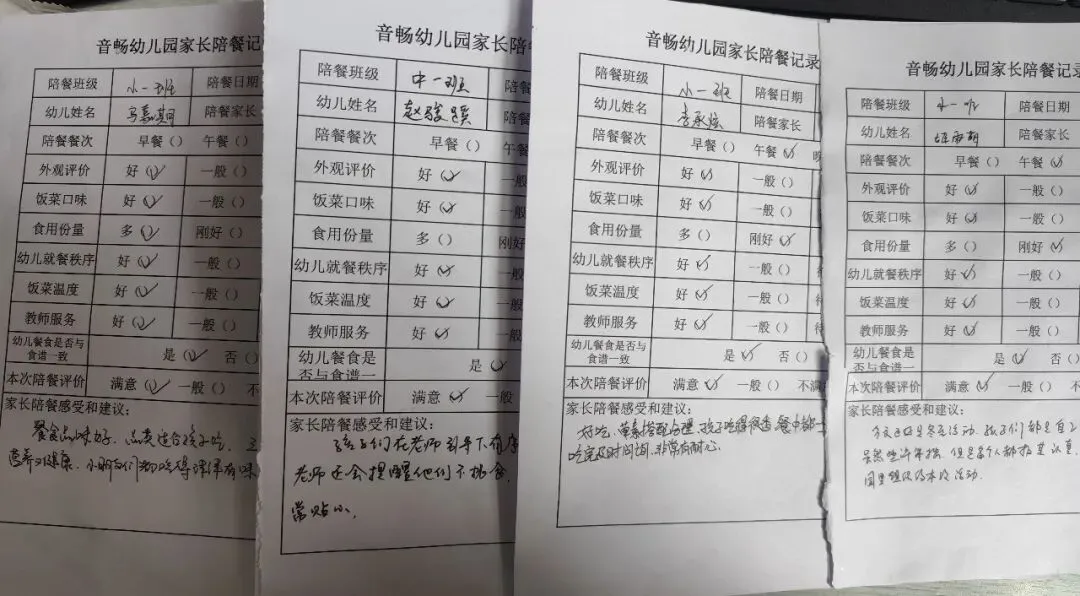 音畅幼儿园家长陪餐记
陪餐班级 小一班 陪餐日期
幼儿姓名 陪餐家长
陪餐餐次 早餐() 午餐()
外观评价 好(✓) 一般()
饭菜口味 好(✓) 一般()
食用份量 多(✓) 刚好()
幼儿就餐秩序 好(✓) 一般()
饭菜温度 好(✓) 一般()
教师服务 好(✓) 一般()
幼儿餐食是否与
食谱一致 是(✓) 否()
本次陪餐评价 满意(✓) 一般() 不
家长陪餐感受和建议:
餐食品味好、品类适合孩子吃,
营养又健康、小朋友们都吃得津津有味
音畅幼儿园家长陪
陪餐班级 中一班 陪餐
幼儿姓名 赵骏 陪餐
陪餐餐次 早餐() 午餐
外观评价 好(✓) 一般
饭菜口味 好(✓) 一般
食用份量 多() 刚好
幼儿就餐秩序 好(✓) 一般
饭菜温度 好(✓) 一般
教师服务 好(✓) 一般
幼儿餐食是
否与食谱一 是(✓)
本次陪餐评价 满意(✓) 一般
家长陪餐感受和建议:
孩子们在老师引导下有序
老师还会提醒他们不挑食,
常贴心.
音畅幼儿园家长陪餐记录
陪餐班级 小一班 陪餐日期
幼儿姓名 李承炫 陪餐家长
陪餐餐次 早餐() 午餐(✓) 晚
外观评价 好(✓) 一般()
饭菜口味 好(✓) 一般()
食用份量 多() 刚好(✓)
幼儿就餐秩序 好(✓) 一般()
饭菜温度 好(✓) 一般() 待
教师服务 好(✓) 一般() 待
幼儿餐食是否与
食谱一致 是(✓) 否()
本次陪餐评价 满意(✓) 一般() 不满
家长陪餐感受和建议:
好吃、荤素搭配合理、孩子吃得很香、餐中
吃完及时问询、非常有耐心.
音畅幼儿园家长陪餐记
陪餐班级 小一班 陪餐日期
幼儿姓名 陪餐家长
陪餐餐次 早餐() 午餐(✓)
外观评价 好(✓) 一般()
饭菜口味 好(✓) 一般()
食用份量 多() 刚好(✓)
幼儿就餐秩序 好(✓) 一般()
饭菜温度 好(✓) 一般()
教师服务 好(✓) 一般()
幼儿餐食是
否与食谱一 是(✓) 否()
本次陪餐评价 满意(✓) 一般()
家长陪餐感受和建议:
今天正好是冬至活动、孩子们都是自己
虽然些许年幼、但是每个人都相当认真
园里组织的本次活动.